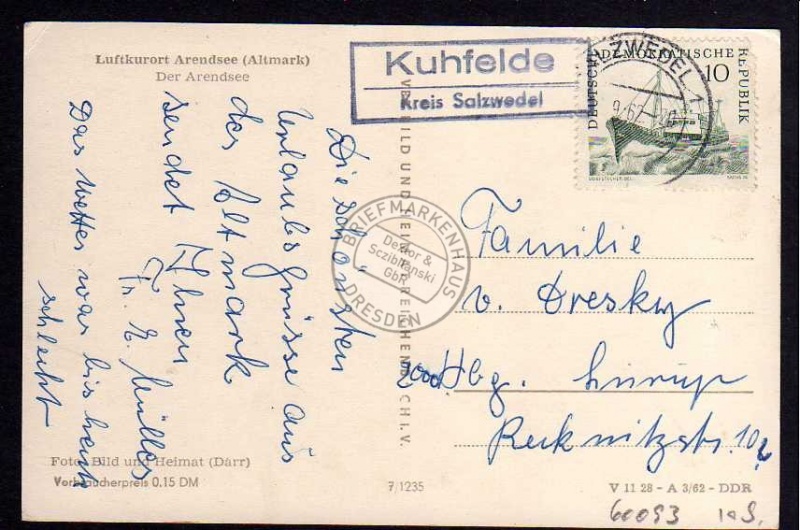 Luftkurort Arendsee (Altmark)
Der Arendsee
Kuhfelde
Kreis Salzwedel
SALZWEDEL 1
9.62
DEUTSCHE DEMOKRATISCHE REPUBLIK
10
Die schönsten
Urlaubsgrüsse aus
der Altmark
sendet Ihnen
Fr. E. Müller
Das Wetter war bis heute
schlecht
Familie
v. Dresky
2000 Hbg. Lurup
Recknitzstr. 10
VEB BILD UND HEIMAT REICHENBACH I. V.
BRIEFMARKENHAUS
Dexlor &
Sczibilanski
GbR
DRESDEN
Foto: Bild und Heimat (Därr)
Verbraucherpreis 0.15 DM
7/1235
V 11 28 - A 3/62 - DDR
60093